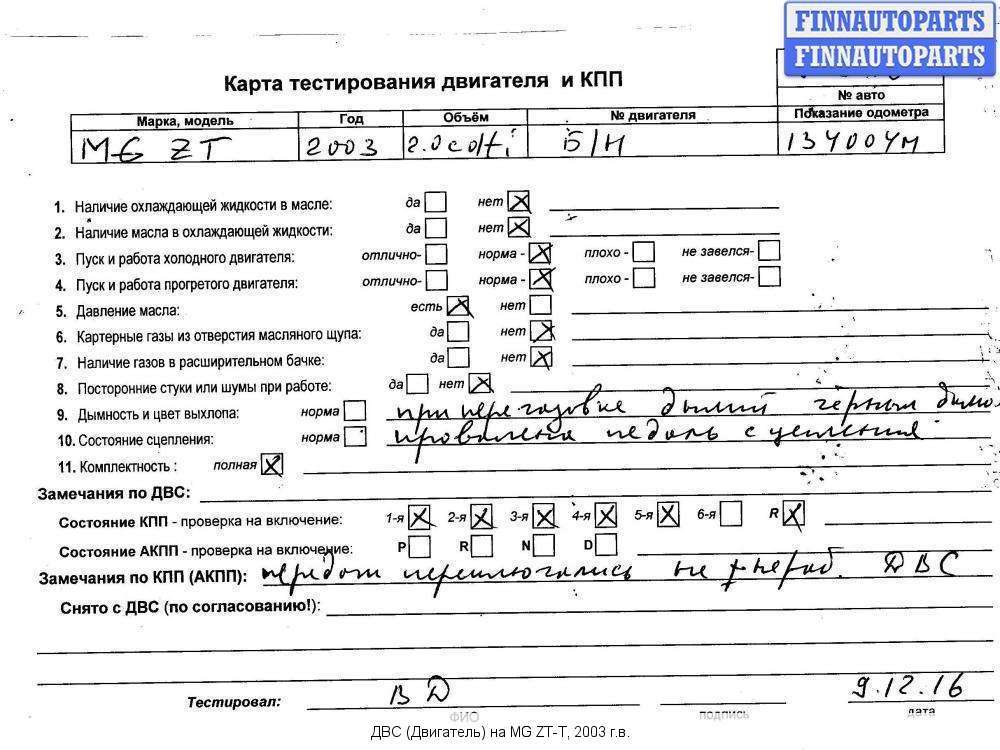 FINNAUTOPARTS
FINNAUTOPARTS
Карта тестирования двигателя и КПП
№ авто
Марка, модель Год Объём № двигателя Показание одометра
MG ZT 2003 2.0 cdti Б/Н 134004м
1. Наличие охлаждающей жидкости в масле: да нет
2. Наличие масла в охлаждающей жидкости: да нет
3. Пуск и работа холодного двигателя: отлично- норма - плохо - не завелся-
4. Пуск и работа прогретого двигателя: отлично- норма - плохо - не завелся-
5. Давление масла: есть нет
6. Картерные газы из отверстия масляного щупа: да нет
7. Наличие газов в расширительном бачке: да нет
8. Посторонние стуки или шумы при работе: да нет
9. Дымность и цвет выхлопа: норма при перегазовке дымит черным дымо
10. Состояние сцепления: норма провалена педаль сцепления
11. Комплектность : полная
Замечания по ДВС:
Состояние КПП - проверка на включение: 1-я 2-я 3-я 4-я 5-я 6-я R
Состояние АКПП - проверка на включение: P R N D
Замечания по КПП (АКПП): передачи переключались на нераб. ДВС
Снято с ДВС (по согласованию!):
Тестировал: ВД 9.12.16
ФИО подпись дата
ДВС (Двигатель) на MG ZT-T, 2003 г.в.